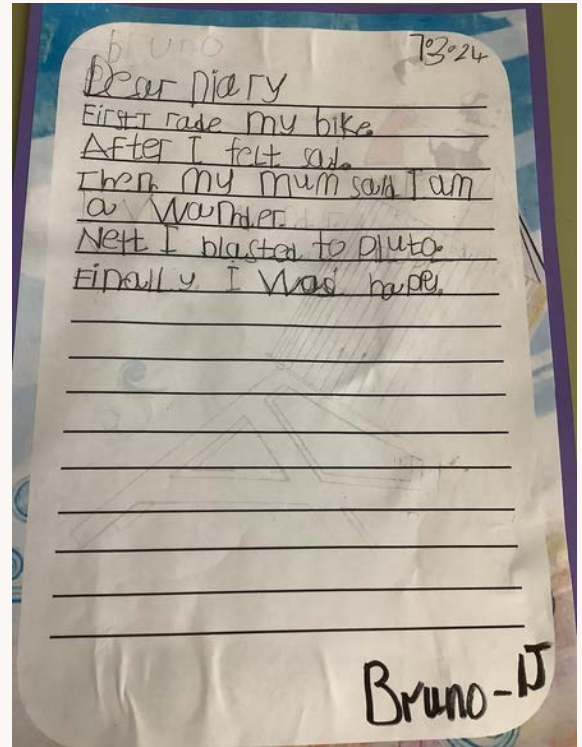 bruno
7.3.24
Dear Diary
First I rade my bike.
After I felt sad.
Then my mum said I am
a Wander.
Nett I blasted to pluto.
Finally I was happy.
Bruno - 1J